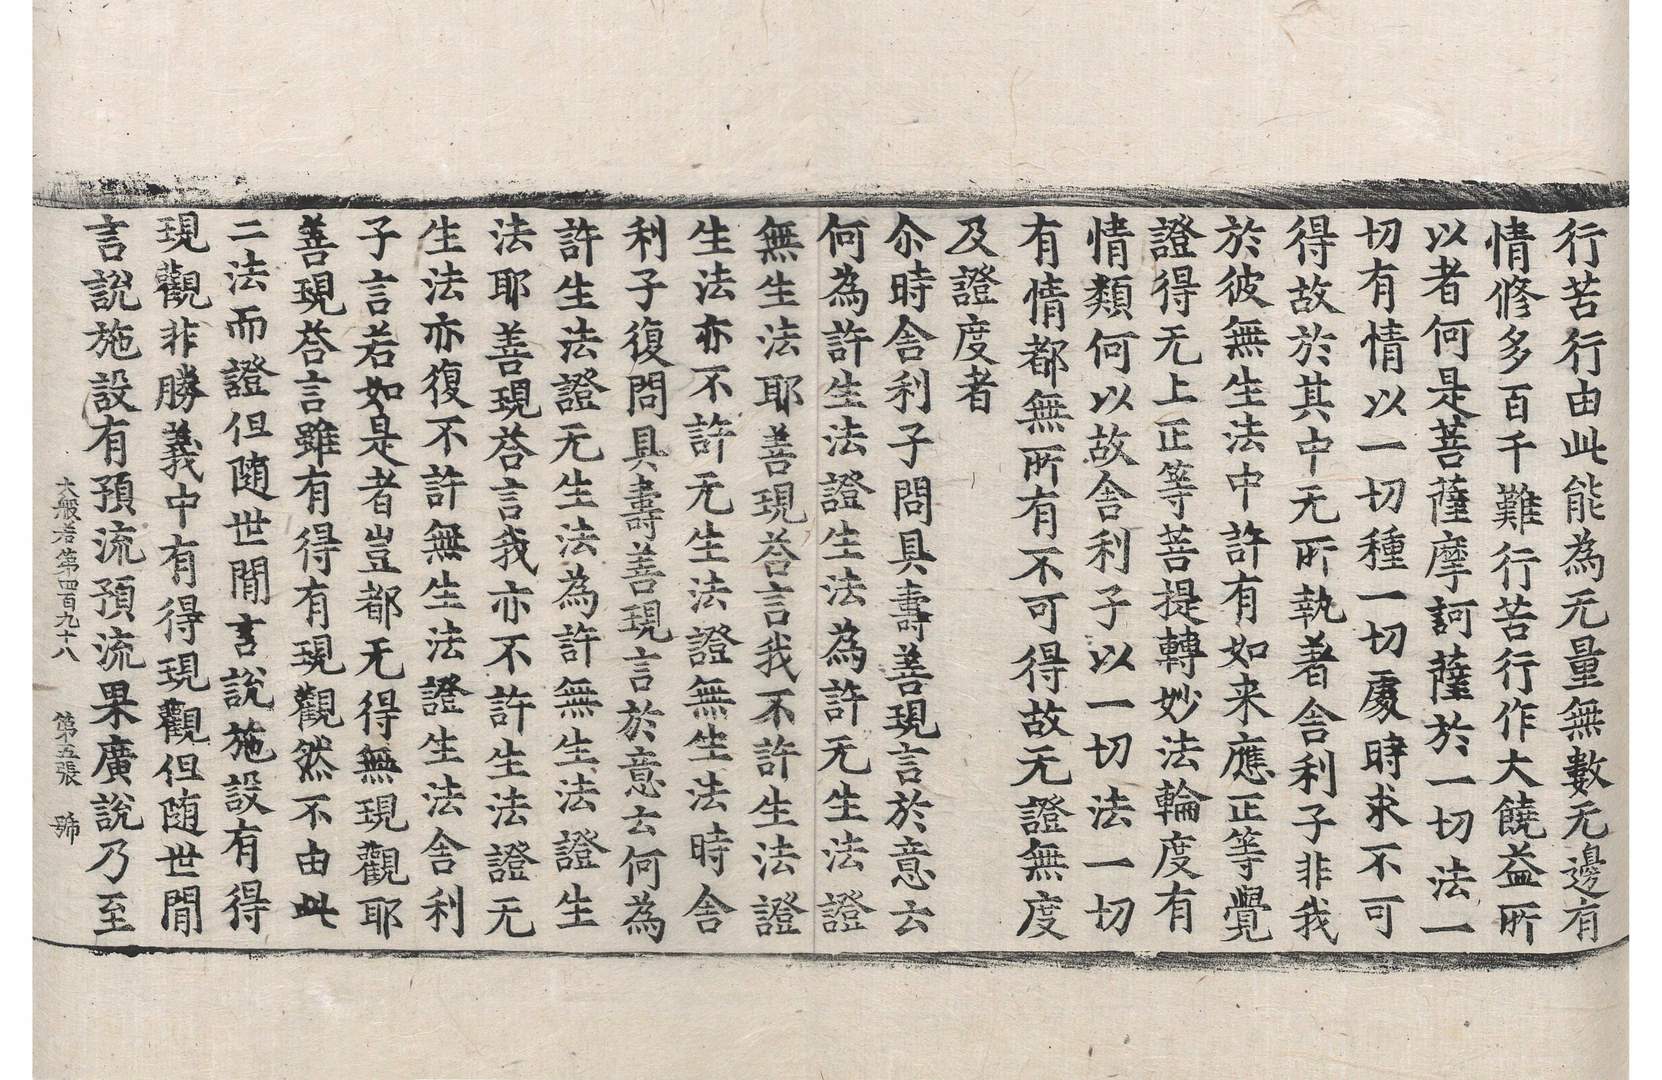 行苦行由此能為无量無數无邊有
情修多百千難行苦行作大饒益所
以者何是菩薩摩訶薩於一切法一
切有情以一切種一切處時求不可
得故於其中无所執著舍利子非我
於彼無生法中許有如来應正等覺
證得无上正等菩提轉妙法輪度有
情類何以故舍利子以一切法一切
有情都無所有不可得故无證無度
及證度者
尒時舍利子問具壽善現言於意云
何為許生法證生法為許无生法證
無生法耶善現荅言我不許生法證
生法亦不許无生法證無生法時舍
利子復問具壽善現言於意云何為
許生法證无生法為許無生法證生
法耶善現荅言我亦不許生法證无
生法亦復不許無生法證生法舍利
子言若如是者豈都无得無現觀耶
善現荅言雖有得有現觀然不由此
二法而證但隨世間言說施設有得
現觀非勝義中有得現觀但隨世間
言說施設有預流預流果廣說乃至
大般若第四百九十八　第五張　號